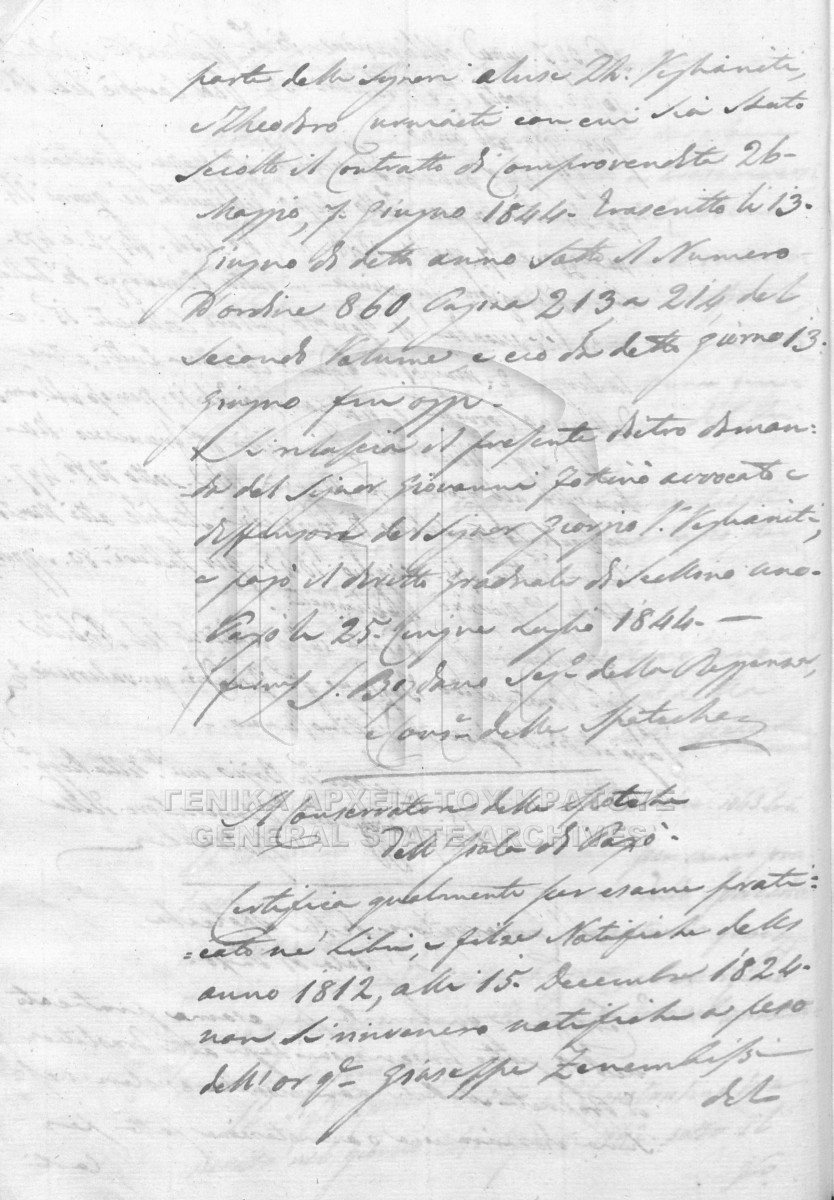 parte delli Signori Aluise Th: Vghianiti,
e Theodoro con cui sia stato
sciolto il Contratto di Compravendita 26-
Maggio, 7. Giugno 1844- Trascritto li 13-
Giugno di detto anno sotto il Numero
D'ordine 860, Pagina 213 a 214 del
secondo Volume, e ciò da detto giorno 13
Giugno fin oggi.
Si rilascia il presente dietro diman:
da del Signor Giovanni avvocato e
diffensore del Signor Giorgio Vghianiti,
e pagò il diritto graduale di Scellino uno-
Paxò li 25- Cinque Luglio 1844- —
firm. S. Bogdano Seg.º della Reggenza,
e Cons.e delle Ipoteche
ΓΕΝΙΚΑ ΑΡΧΕΙΑ ΤΟΥ ΚΡΑΤΟΥΣ
GENERAL STATE ARCHIVES
Il Conservatore delle Ipoteche
Dell'Isola di Paxò.
Certifica qualmente per esame prati:
=cato ne' Libri, e filze Notifiche dell'
anno 1812, alli 15. Decembre 1824-
non si rinvenero notifiche a peso
dell'or q.m Giuseppe
del